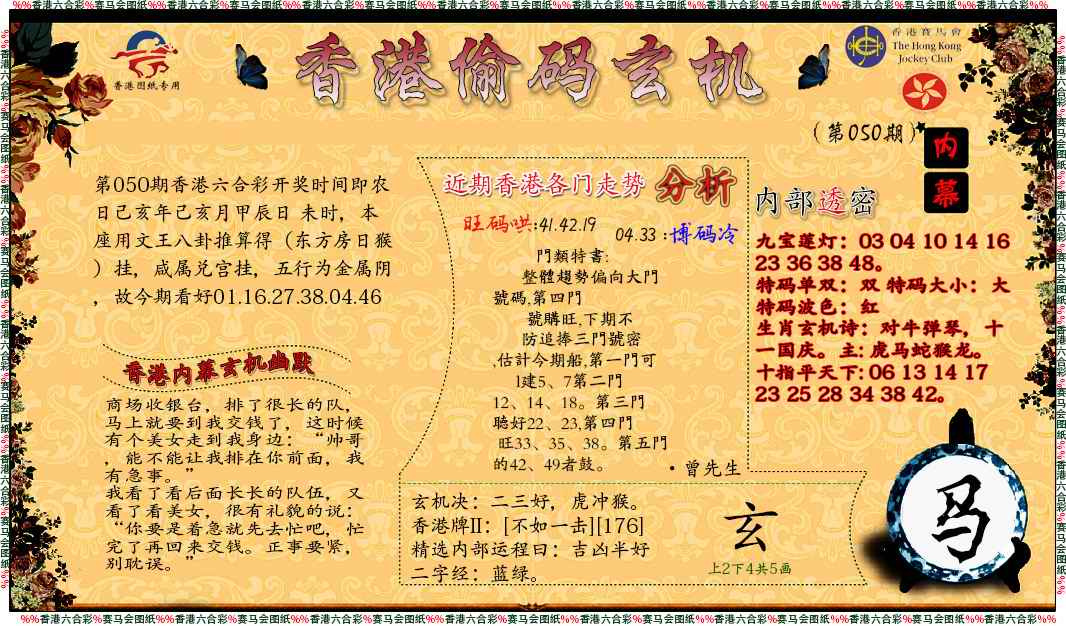 %%香港六合彩%赛马会图纸%%香港六合彩%赛马会图纸%%香港六合彩%赛马会图纸%%香港六合彩%赛马会图纸%%香港六合彩%赛马会图纸%%香港六合彩%赛马会图纸%%香港六合彩%赛马会图纸%%香港六合彩%%
香港图纸专用
香港偷码玄机
香港賽馬會
The Hong Kong
Jockey Club
(第050期)
内
幕
第050期香港六合彩开奖时间即农
日己亥年己亥月甲辰日 未时，本
座用文王八卦推算得（东方房日猴
）挂，咸属兑宫挂，五行为金属阴
，故今期看好01.16.27.38.04.46
香港内幕玄机幽默
商场收银台，排了很长的队，
马上就要到我交钱了，这时候
有个美女走到我身边：“帅哥
，能不能让我排在你前面，我
有急事。”
我看了看后面长长的队伍，又
看了看美女，很有礼貌的说：
“你要是着急就先去忙吧，忙
完了再回来交钱。正事要紧，
别耽误。”
近期香港各门走势 分析
旺码哄:41.42.19
04.33 :博码冷
門類特書:
整體趨勢偏向大門
號碼,第四門
號購旺,下期不
防追捧三門號密
,估計今期船,第一門可
1建5、7第二門
12、14、18。第三門
聽好22、23,第四門
旺33、35、38。第五門
的42、49者鼓。
•曾先生
玄机决：二三好，虎冲猴。
香港牌II：[不如一击][176]
精选内部运程曰：吉凶半好
二字经：蓝绿。
玄
上2下4共5画
内部透密
九宝莲灯：03 04 10 14 16
23 36 38 48。
特码单双：双 特码大小：大
特码波色：红
生肖玄机诗：对牛弹琴，十
一国庆。主: 虎马蛇猴龙。
十指平天下: 06 13 14 17
23 25 28 34 38 42。
马
%%香港六合彩%赛马会图纸%%香港六合彩%赛马会图纸%%香港六合彩%赛马会图纸%%香港六合彩%赛马会图纸%%香港六合彩%赛马会图纸%%香港六合彩%赛马会图纸%%香港六合彩%赛马会图纸%%香港六合彩%%